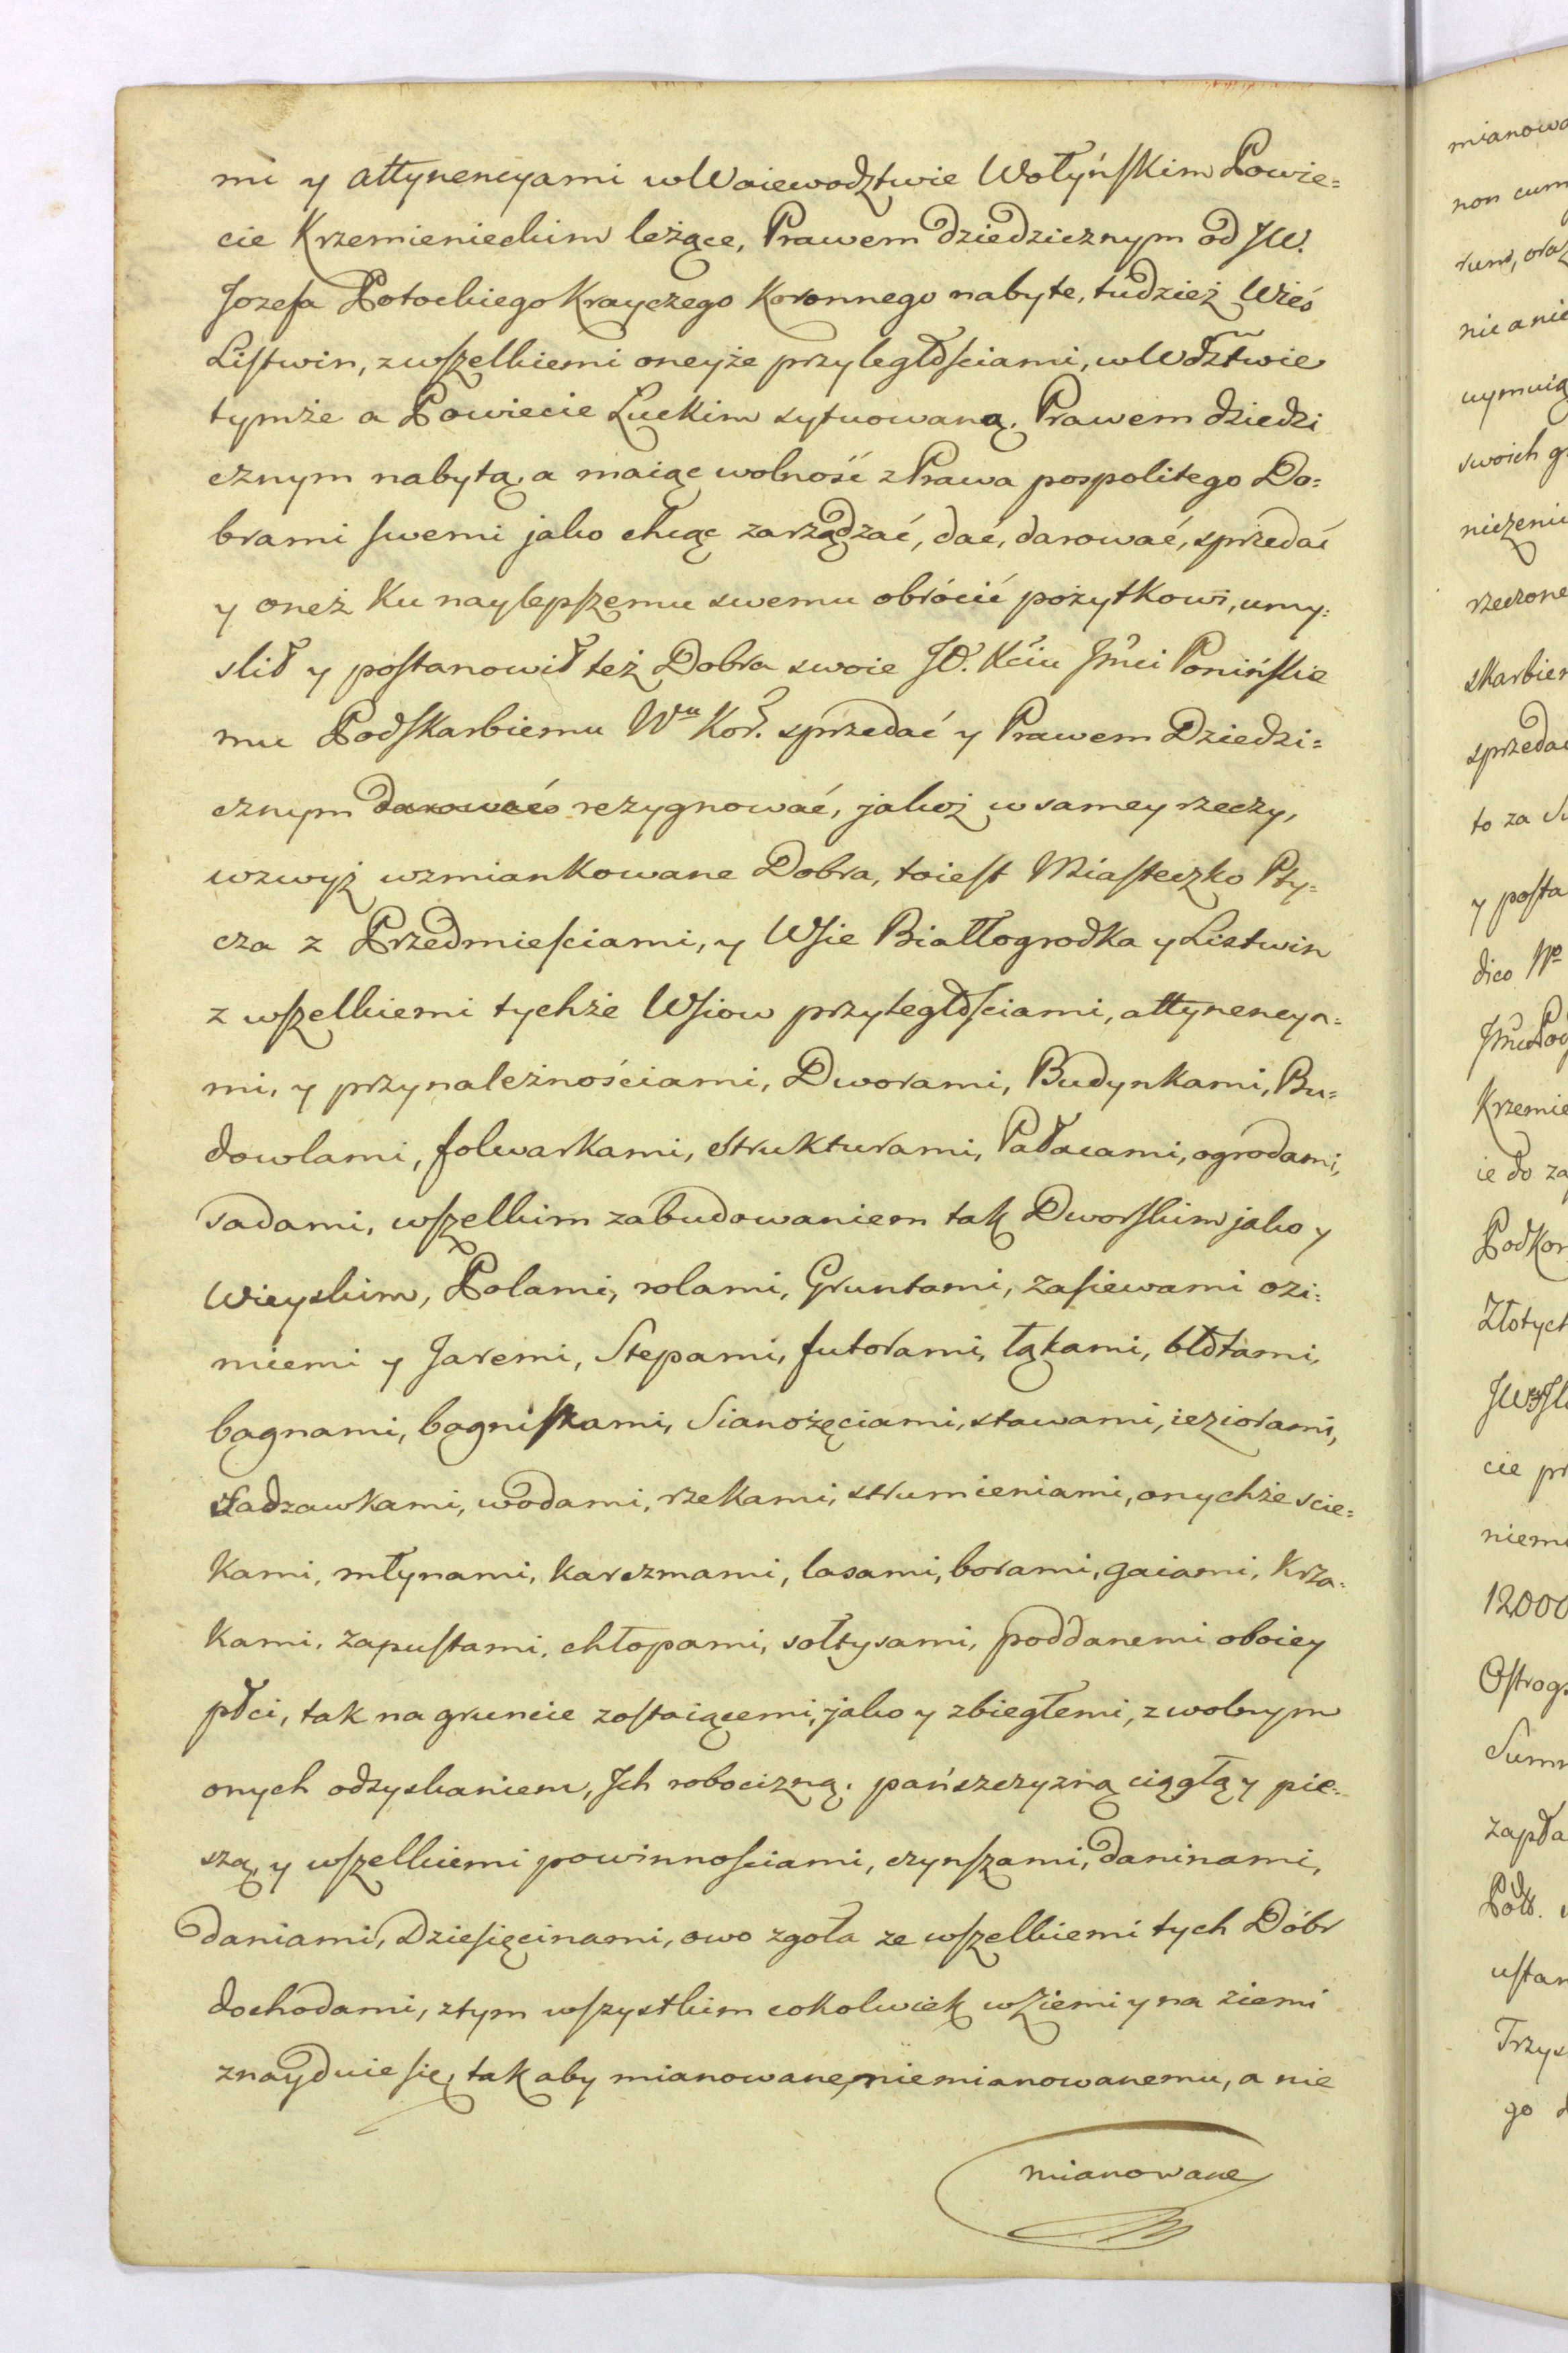 mi y attynencyami w Woiewodztwie Wołyńskim Powie=
cie Krzemienieckim leżące, Prawem dziedzicznym od JW.
Jozefa Potockiego Krayczego Koronnego nabyte, tudzież Wieś
Listwin, z wszelkiemi oneyże przyległościami, w Wdztwie
tymże a Powiecie Łuckim sytuowaną, Prawem dziedzi
cznym nabytą, a maiąc wolność z Prawa pospolitego Do=
brami swemi jako chcąc zarządzać, dać, darować, sprzedać
y oneż ku naylepszemu swemu obrócić pożytkowi, umy=
slił y postanowił też Dobra swoie JO. Kciu Jmci Ponińskie
mu Podskarbiemu Wu Kor. sprzedać y Prawem Dziedzi=
cznym darować rezygnować, jakoż w samey rzeczy,
wzwyż wzmiankowane Dobra, toiest Miasteczko Pty=
cza z Przedmieściami, y Wsie Białłogrodka y Listwin
z wszelkiemi tychże Wsiow przyległościami, attynencya=
mi, y przynależnościami, Dworami, Budynkami, Bu=
dowlami, folwarkami, strukturami, Pałacami, ogrodami,
sadami, wszelkim zabudowaniem tak Dworskim jako y
Wieyskim, Polami, rolami, Gruntami, zasiewami ozi=
miemi y Jaremi, Stepami, futorami, łąkami, błotami,
bagnami, bagniskami, Sianożęciami, stawami, ieziorami,
sadzawkami, wodami, rzekami, strumieniami, onychże scie=
kami, młynami, karczmami, lasami, borami, gaiami, krza=
kami, zapustami, chłopami, sołtysami, poddanemi oboiey
płci, tak na gruncie zostaiącemi, jako y zbiegłemi, z wolnym
onych odzyskaniem, Jch robocizną, pańszczyzną ciągłą y pie=
szą, y wszelkiemi powinnościami, czynszami, daninami,
daniami, Dziesięcinami, owo zgoła ze wszelkiemi tych Dóbr
dochodami, z tym wszystkim cokolwiek w Ziemi y na ziemi
znayduie się, tak aby mianowane, niemianowanemu, a nie
mianowane
mianowa
non cum
rum, oraz
nic a nie
uymuią
swoich g
niczeniu
rzeczone
skarbie
sprzeda
to za
y posta
dico
Krzemie
ie do za
Podkor
Złotych
cie pr
niem
12000
Ostrog
Summ
zapła
ustan
Trzys
go